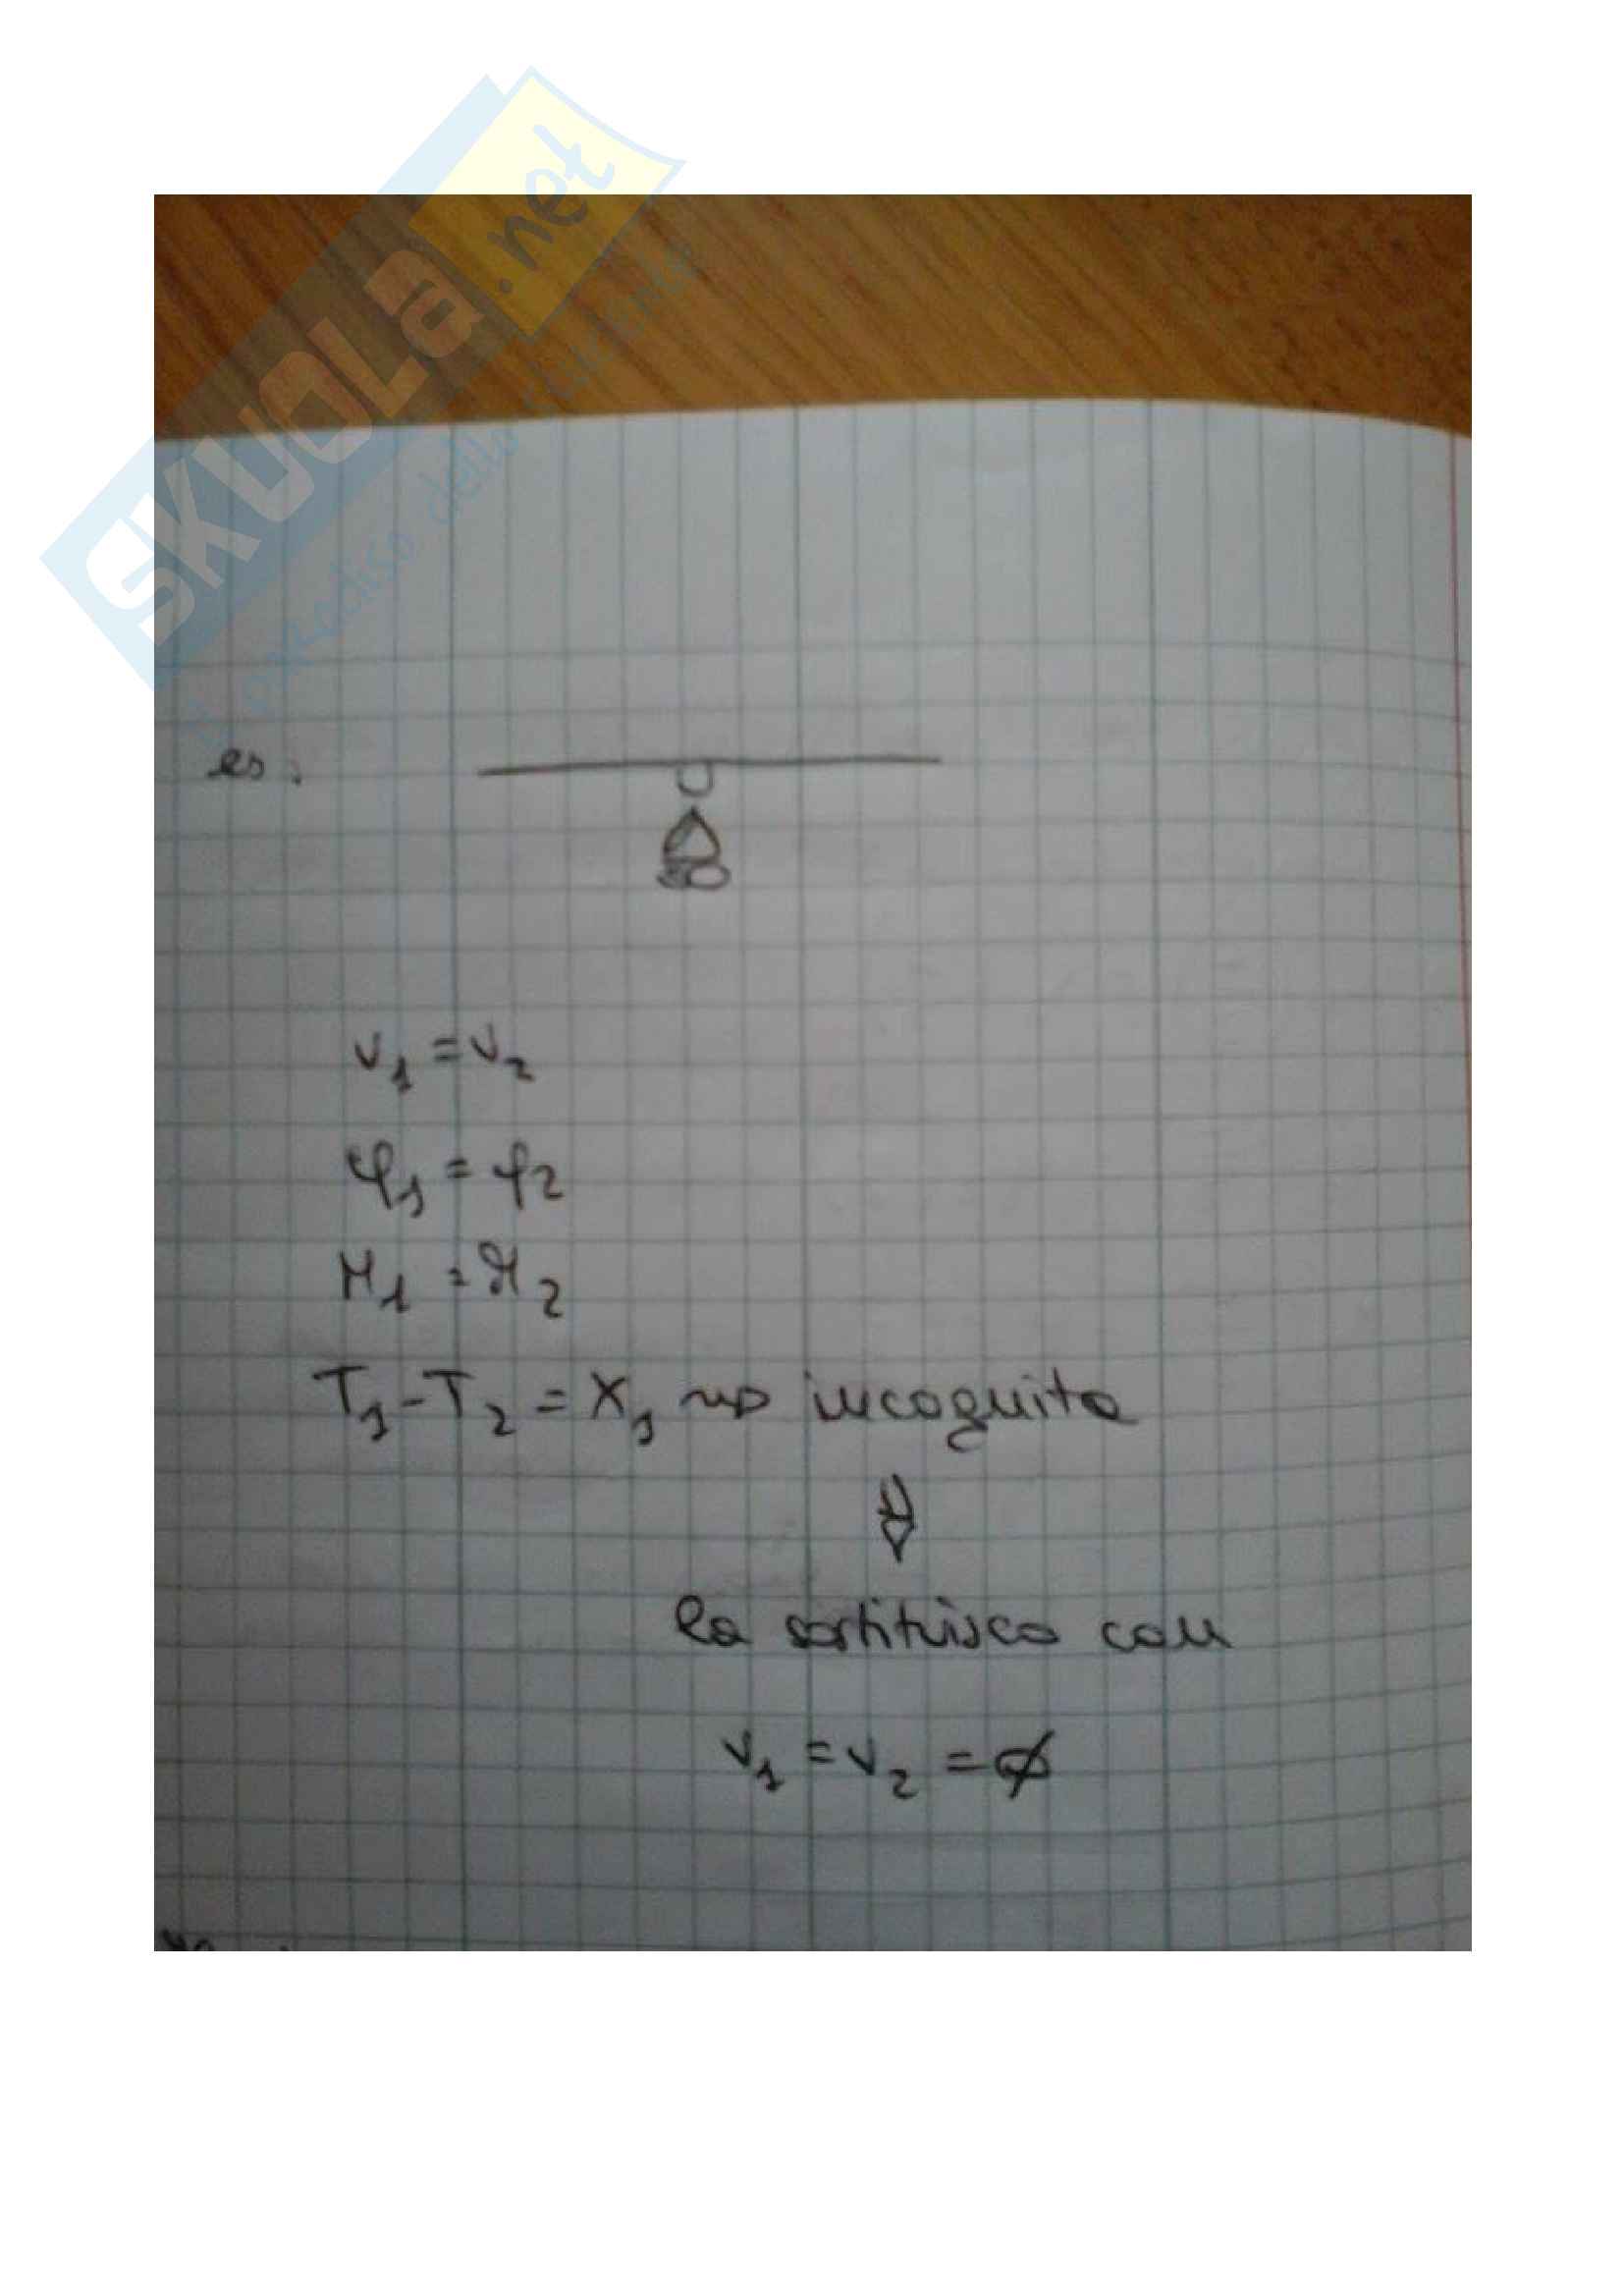 SKUOLA.net
il paradiso dello studente
es.
v₁ = v₂
φ₁ = φ₂
M₁ = M₂
T₁ - T₂ = X₁ ⇝ incognita
⇓
la sostituisco con
v₁ = v₂ = ∅